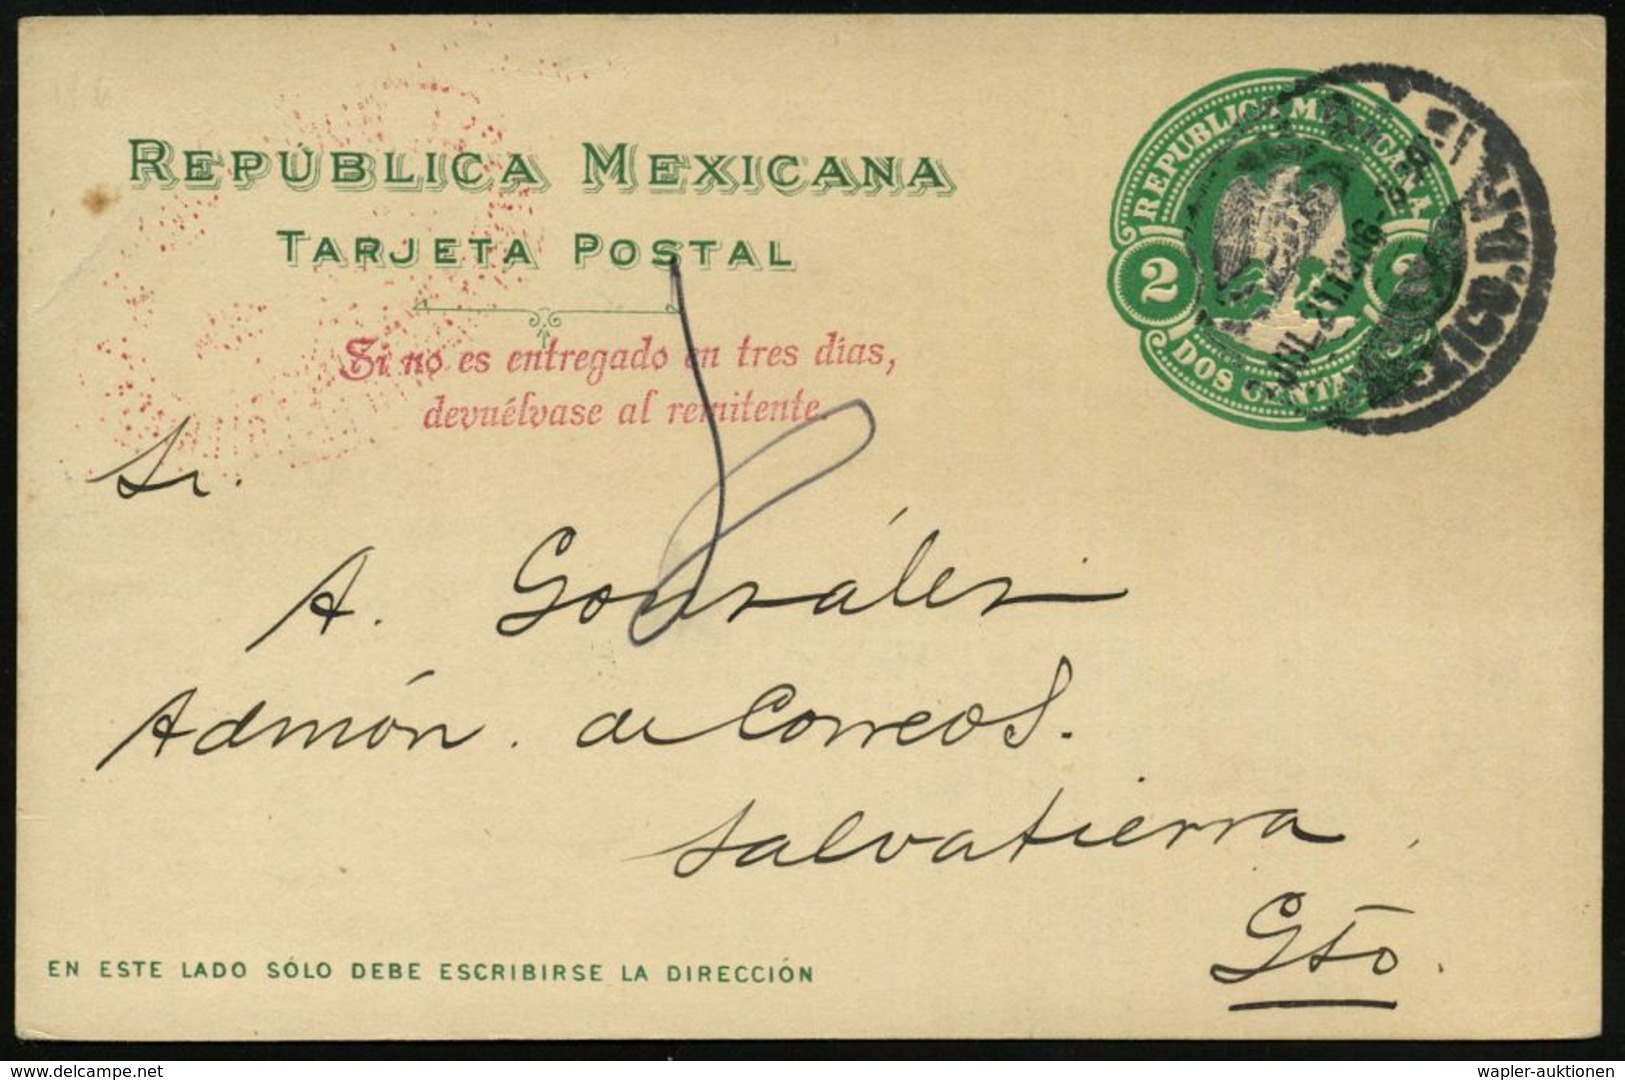 REPÚBLICA MEXICANA
TARJETA POSTAL
Si no es entregado en tres días,
devuélvase al remitente.
REPÚBLICA MEXICANA
2 2
DOS CENTAVOS
JUL
Sr.
A. González
Admón. de Correos.
Salvatierra,
Gto.
EN ESTE LADO SÓLO DEBE ESCRIBIRSE LA DIRECCIÓN
www.delcampe.net
wapler-auktionen